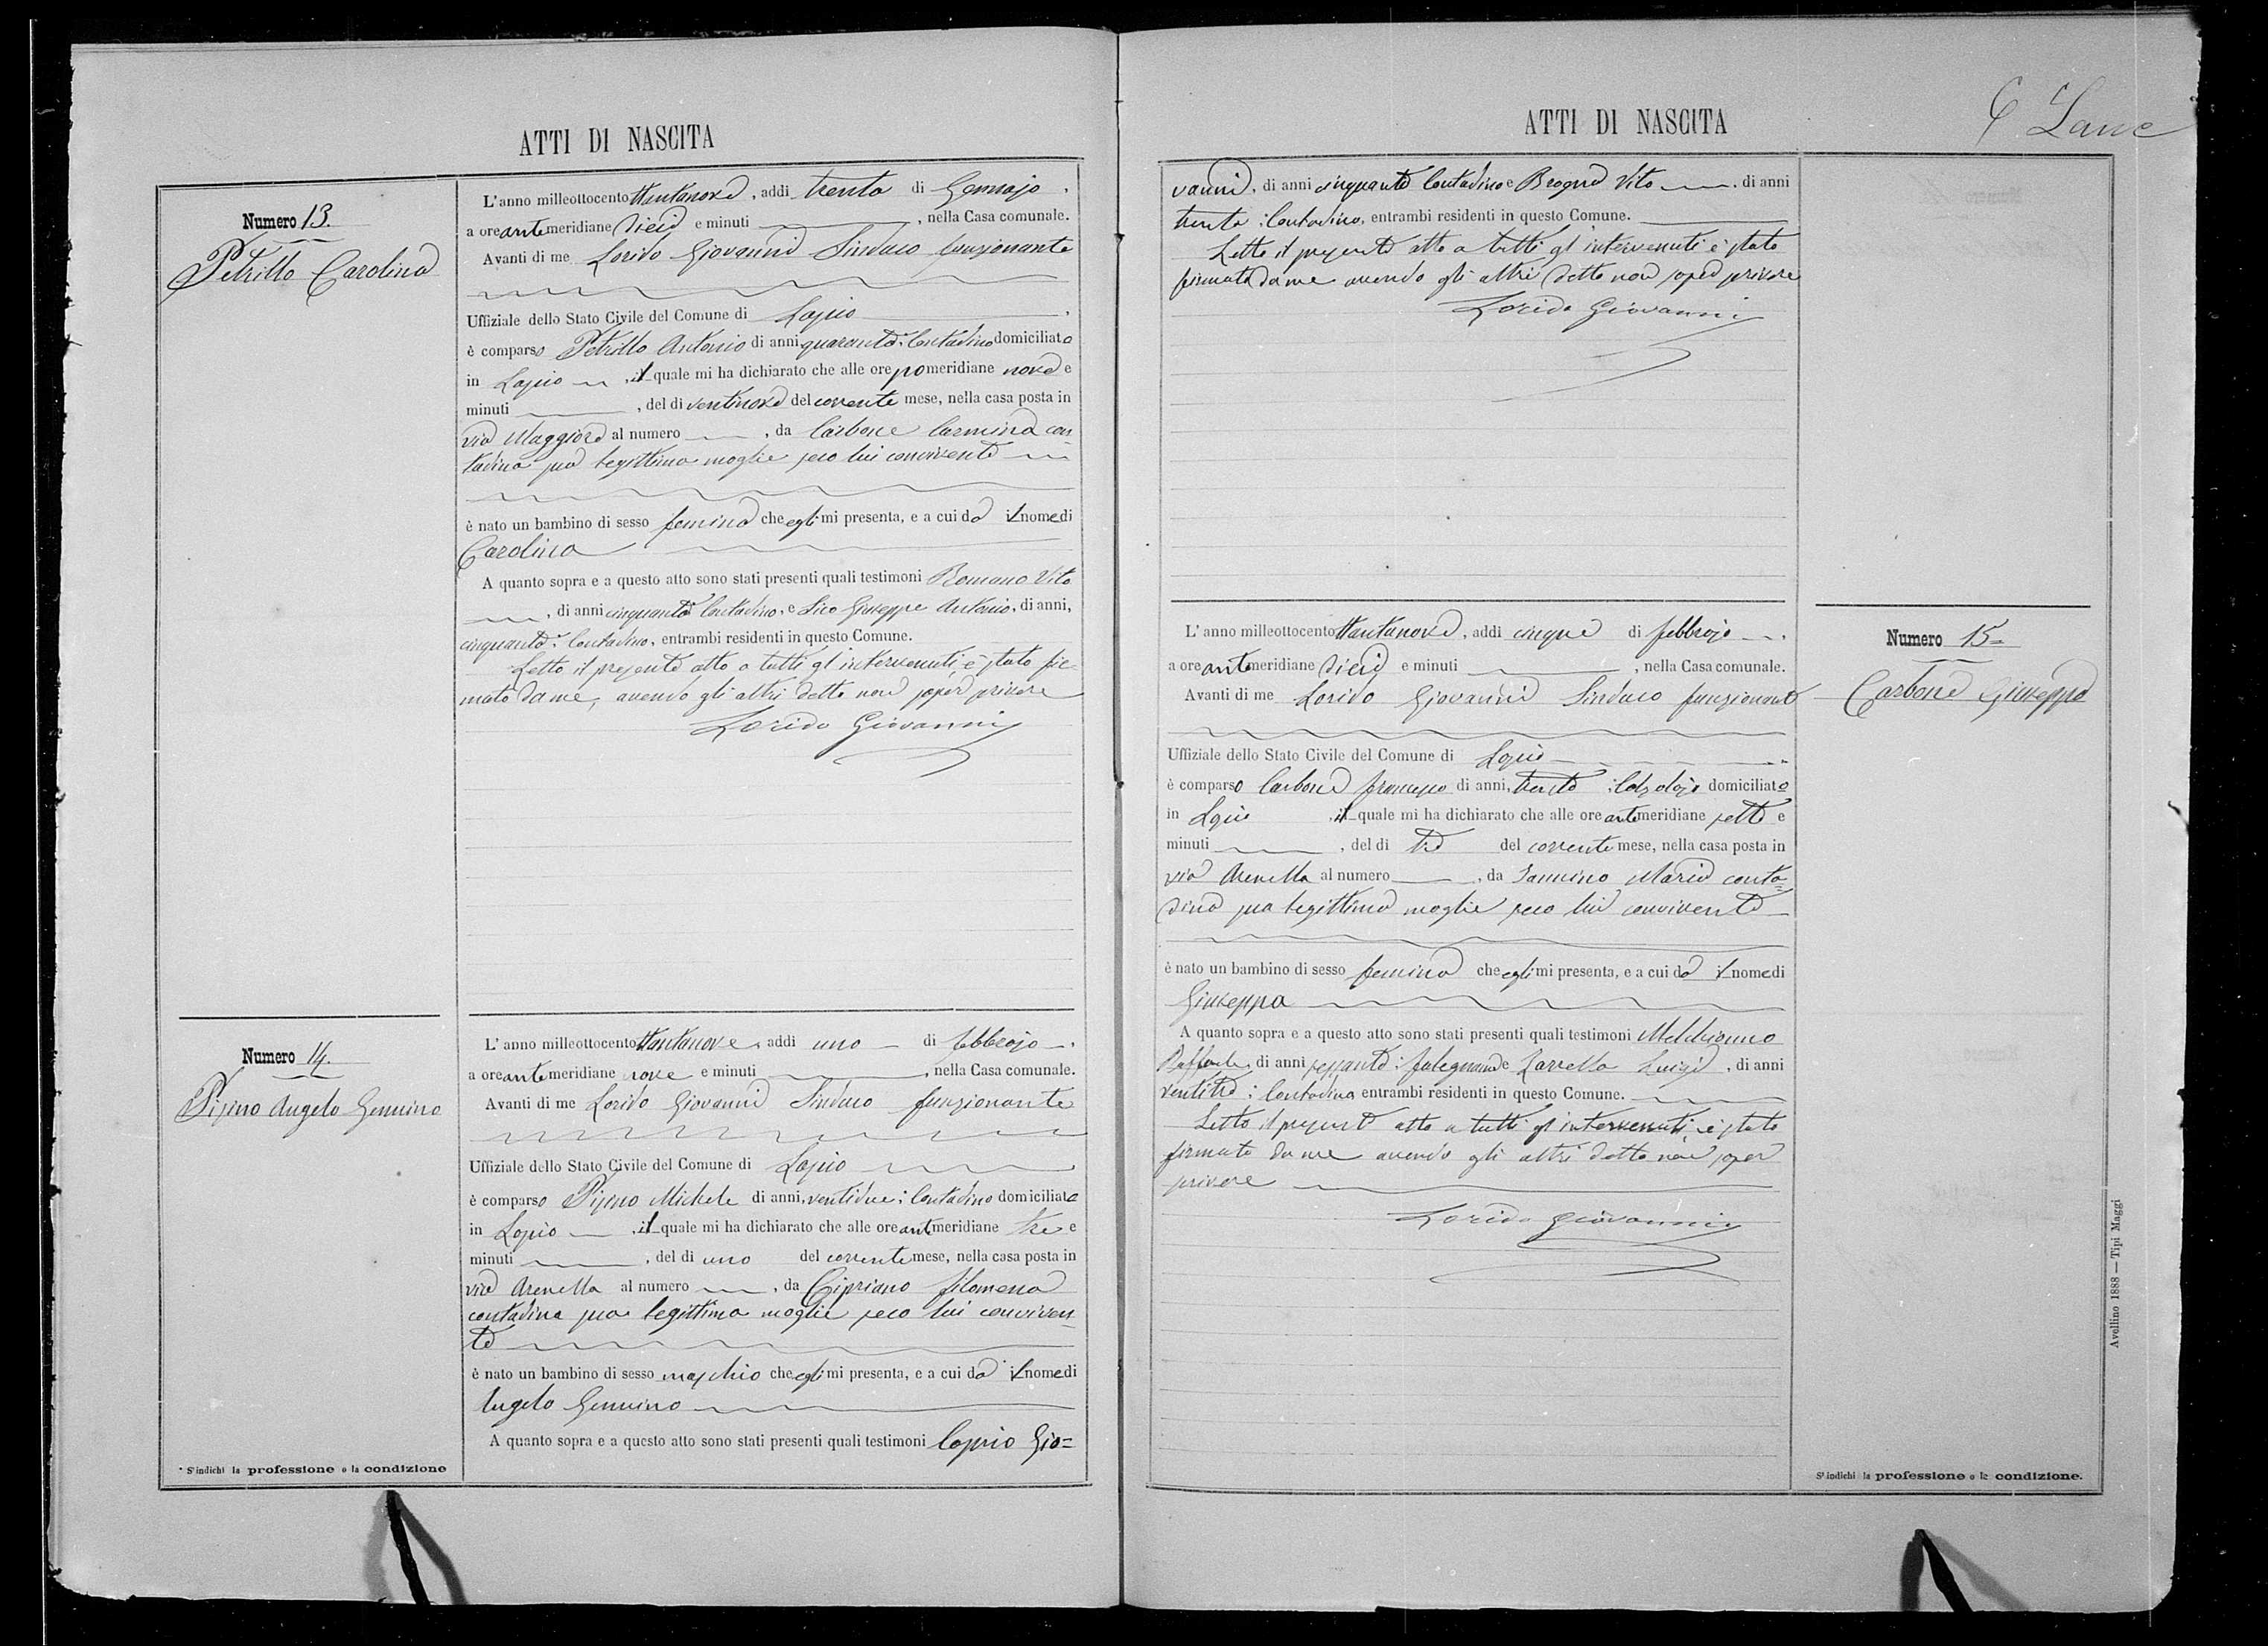 ATTI DI NASCITA
Numero 13.
Petrillo Carolina
L'anno milleottocento ottantanove, addì trenta di Gennajo,
a ore antemeridiane dieci e minuti , nella Casa comunale.
Avanti di me Lorido Giovanni Sindaco funzionante
Uffiziale dello Stato Civile del Comune di Lapio ,
è comparso Petrillo Antonio di anni quaranta: Contadino domiciliato
in Lapio , il quale mi ha dichiarato che alle ore pomeridiane nove e
minuti , del dì ventinove del corrente mese, nella casa posta in
via Maggiore al numero , da Carbone Carmina con
tadina sua legittima moglie seco lui convivente
è nato un bambino di sesso femina che egli mi presenta, e a cui da il nome di
Carolina
A quanto sopra e a questo atto sono stati presenti quali testimoni Romano Vito
, di anni cinquanta Contadino, e Lico Giuseppe Antonio, di anni,
cinquanta: Contadino, entrambi residenti in questo Comune.
Letto il presente atto a tutti gl'intervenuti è stato fir
mato da me, avendo gli altri detto non saper scrivere
Lorido Giovanni
Numero 14.
Pisino Angelo Gennino
L'anno milleottocento ottantanove, addì uno di febbrajo,
a ore antemeridiane nove e minuti , nella Casa comunale.
Avanti di me Lorido Giovanni Sindaco funzionante
Uffiziale dello Stato Civile del Comune di Lapio
è comparso Pisino Michele di anni, ventidue: Contadino domiciliato
in Lapio , il quale mi ha dichiarato che alle ore antimeridiane tre e
minuti , del dì uno del corrente mese, nella casa posta in
via Arenella al numero , da Cipriano filomena
contadina sua legittima moglie seco lui conviven-
te
è nato un bambino di sesso maschio che egli mi presenta, e a cui da il nome di
Angelo Gennino
A quanto sopra e a questo atto sono stati presenti quali testimoni Caprio Gio=
* S'indichi la professione o la condizione
ATTI DI NASCITA
6
vanni, di anni cinquanta Contadino e Brogna Vito , di anni
trenta: Contadino, entrambi residenti in questo Comune.
Letto il presente atto a tutti gl'intervenuti è stato
firmato da me avendo gli altri detto non saper scrivere
Lorido Giovanni
L'anno milleottocento ottantanove, addì cinque di febbrajo ,
a ore antemeridiane dieci e minuti , nella Casa comunale.
Avanti di me Lorido Giovanni Sindaco funzionante
Numero 15=
Carbone Giuseppa
Uffiziale dello Stato Civile del Comune di Lapio
è comparso Carbone francesco di anni, trenta: Calzolajo domiciliato
in Lapio , il quale mi ha dichiarato che alle ore antemeridiane sette e
minuti , del dì tre del corrente mese, nella casa posta in
via Arenella al numero , da Iannino Maria conta=
dina sua legittima moglie seco lui convivente
è nato un bambino di sesso femina che egli mi presenta, e a cui da il nome di
Giuseppa
A quanto sopra e a questo atto sono stati presenti quali testimoni Melchionno
Raffaele, di anni sessanta: falegname e Zarrella Luigi, di anni
ventitre: Contadino, entrambi residenti in questo Comune.
Letto il presente atto a tutti gl'intervenuti, è stato
firmato da me avendo gli altri detto non saper
scrivere
Lorido Giovanni
S'indichi la professione o la condizione.
Avellino 1888 — Tipi Maggi